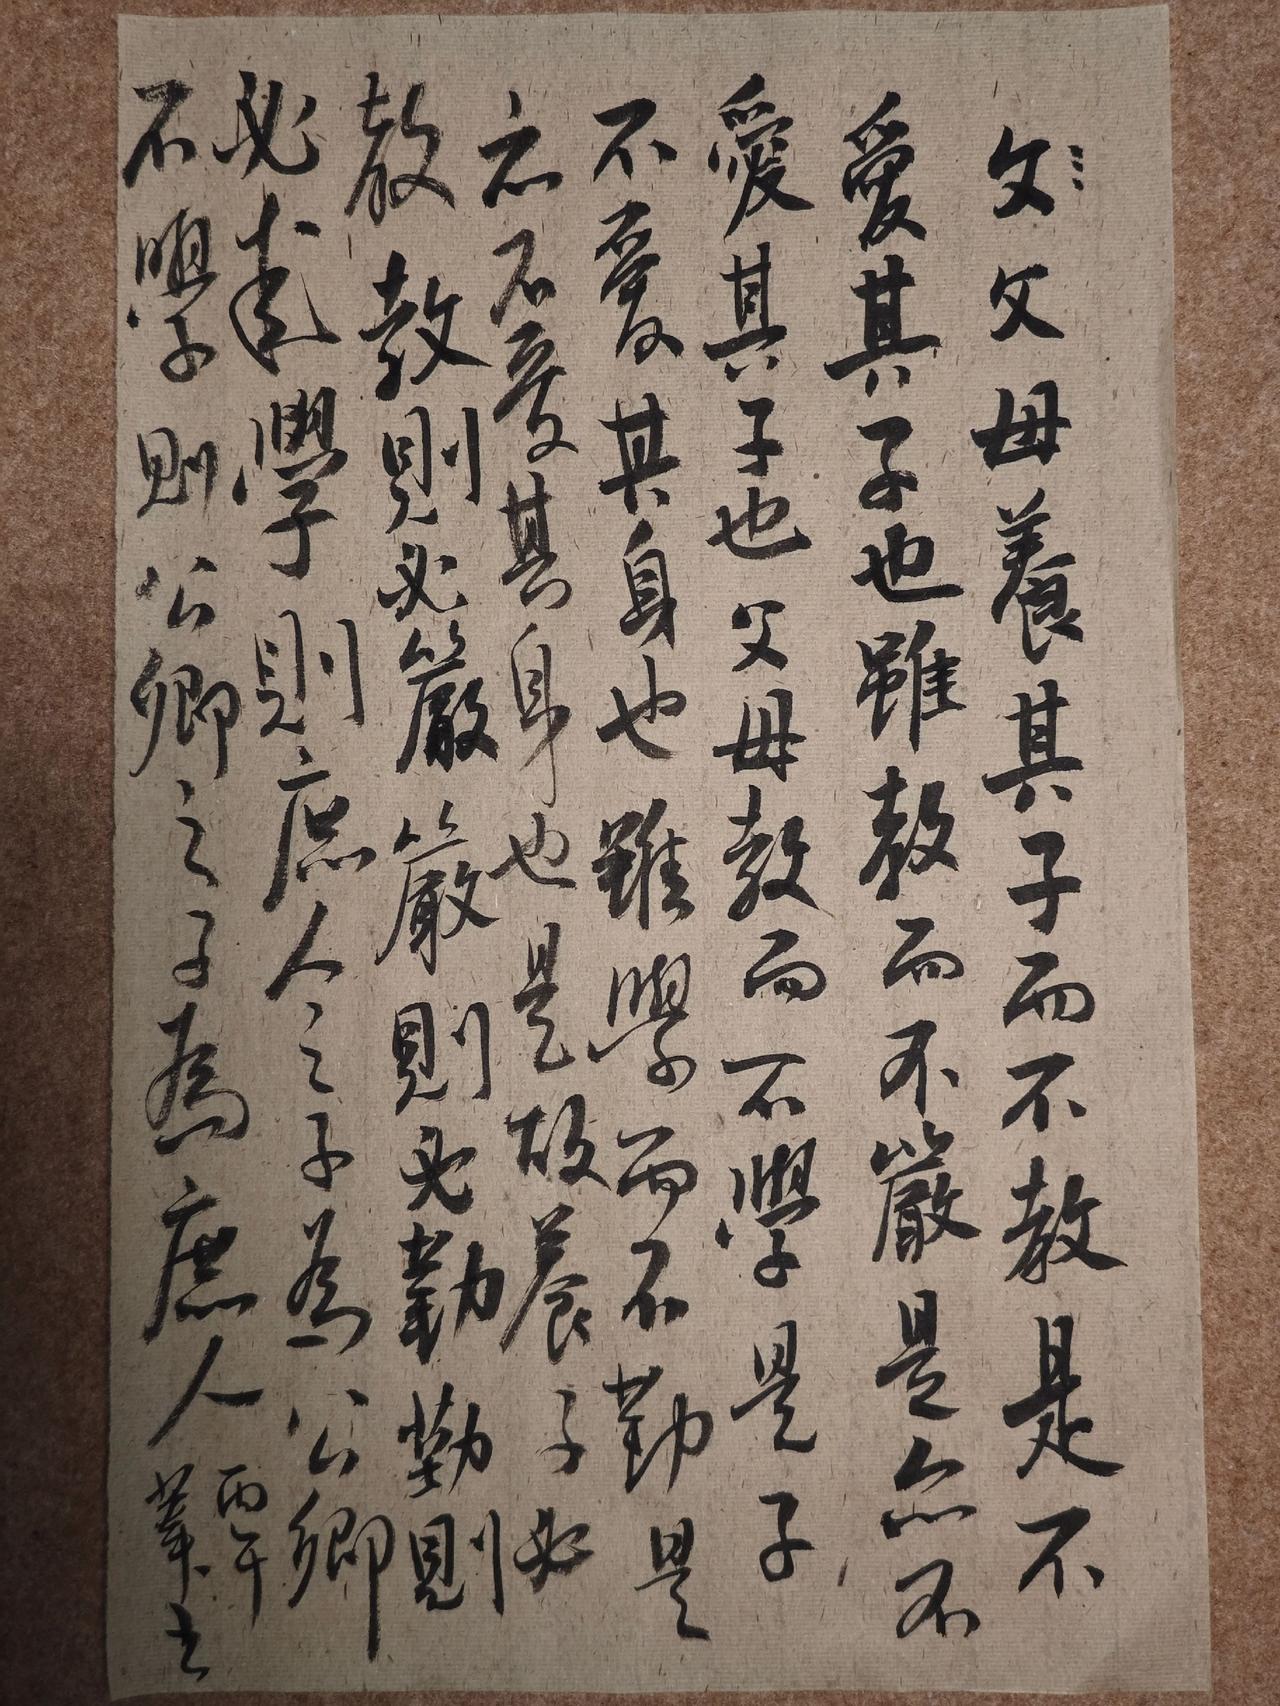 父父母養其子而不教是不
愛其子也雖教而不嚴是亦不
愛其子也父母教而不學是子
不愛其身也雖學而不勤是
亦不愛其身也是故養子必
教教則必嚴嚴則必勤勤則
必成學則庶人之子為公卿
不學則公卿之子為庶人
丙午